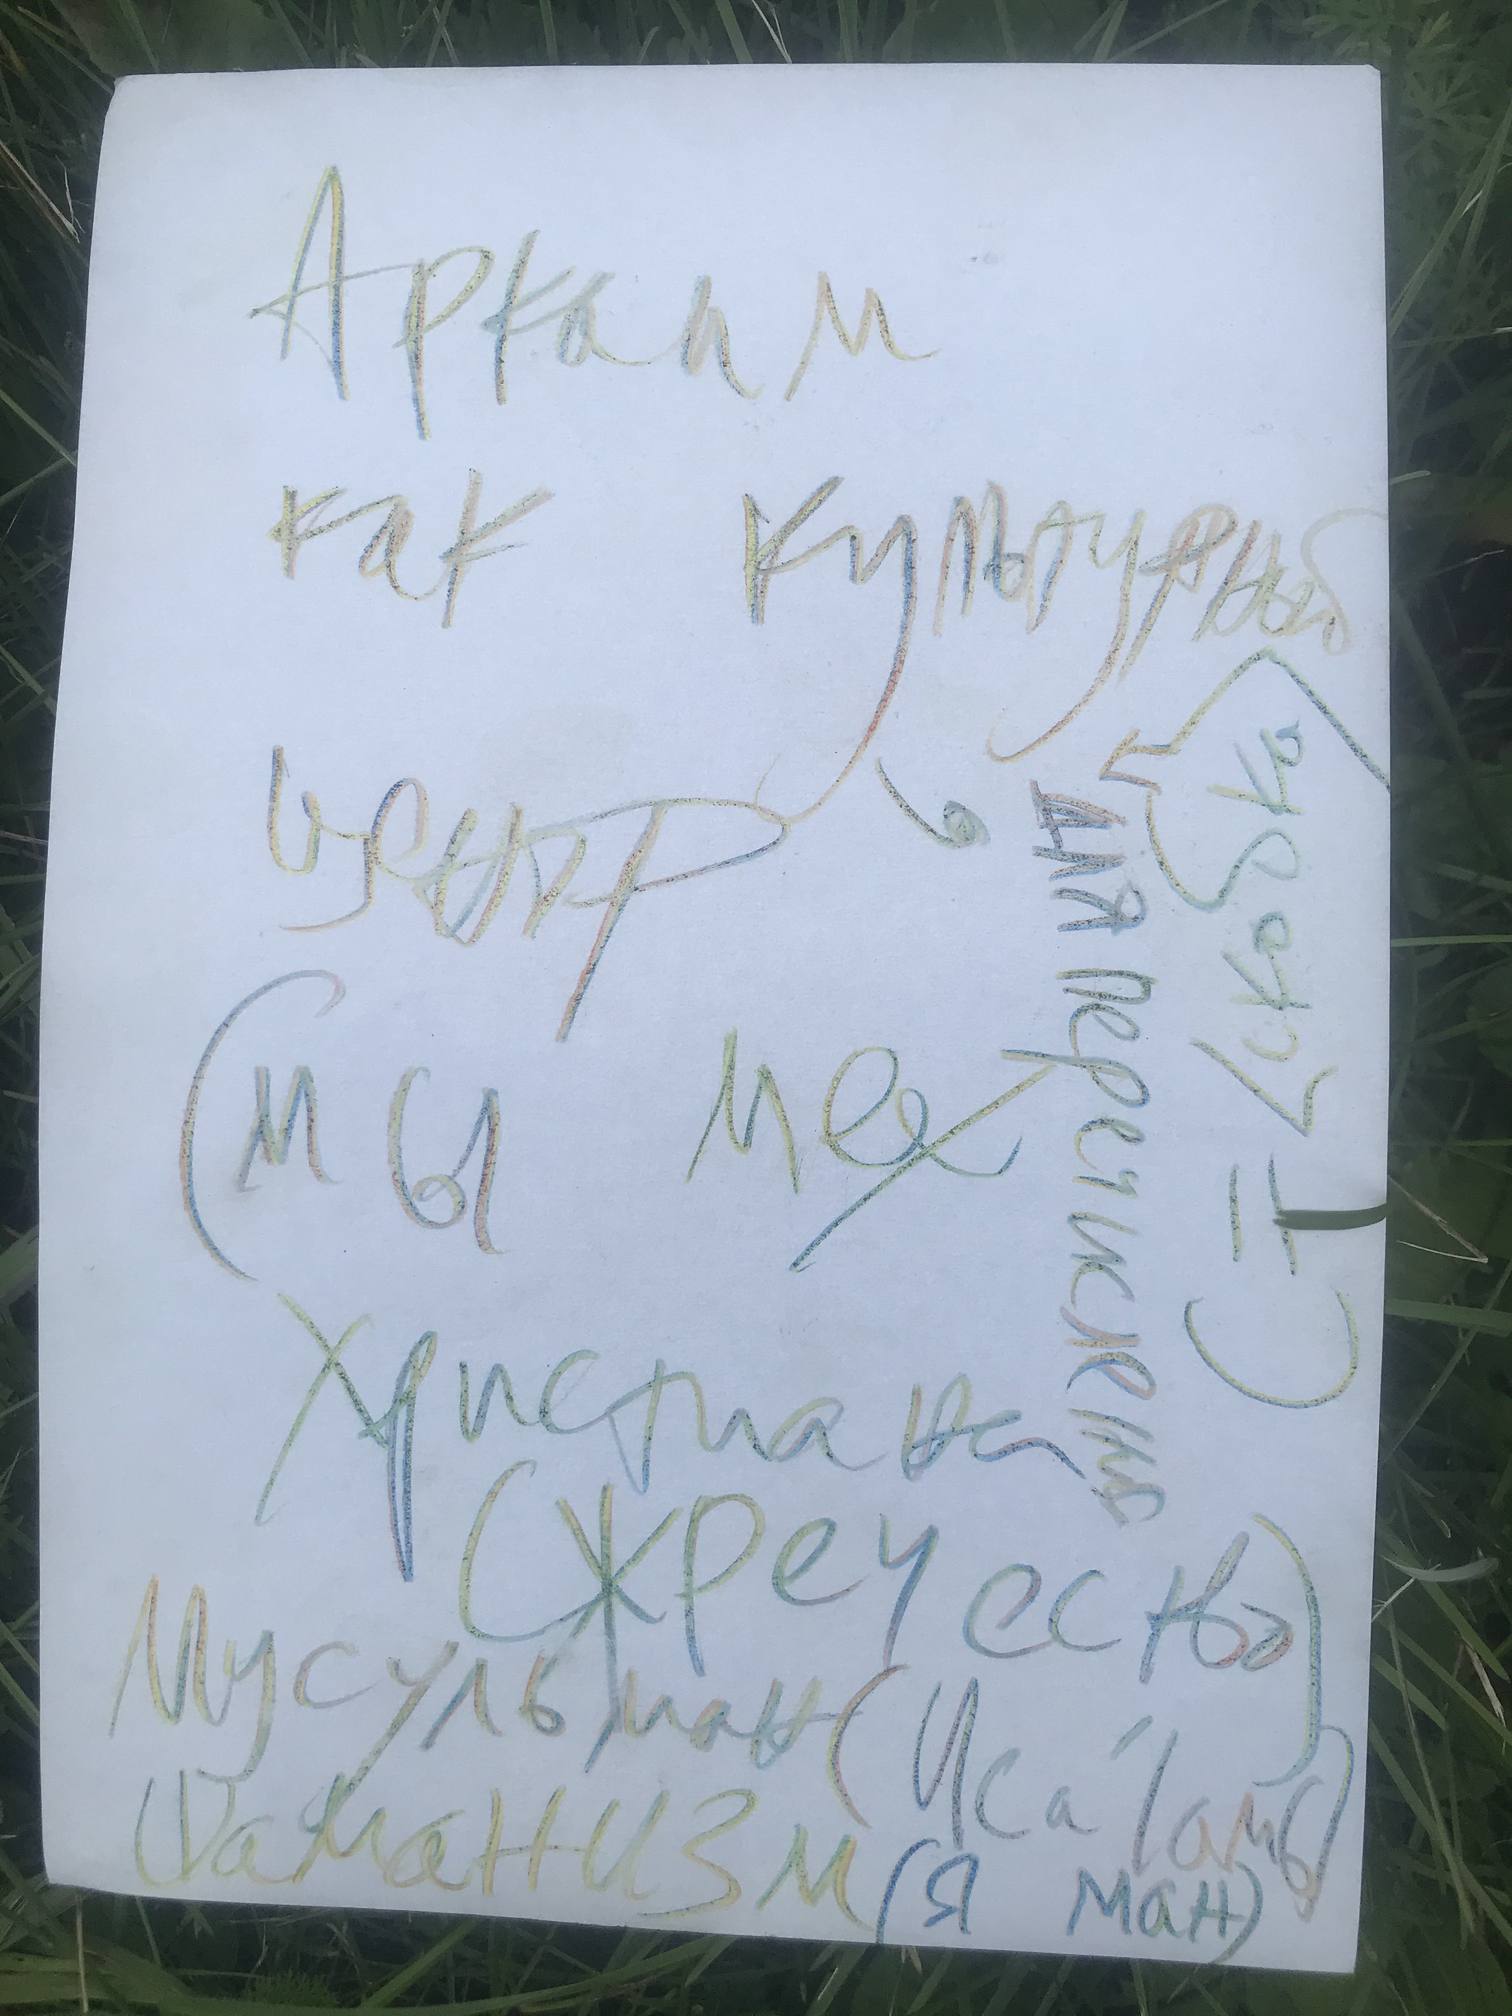 Аркаим
как культурный
центр,
(мы мех
Христиана
(жречество)
Мусульман (Иса'
Шаманизм (я ман)
для
скобка